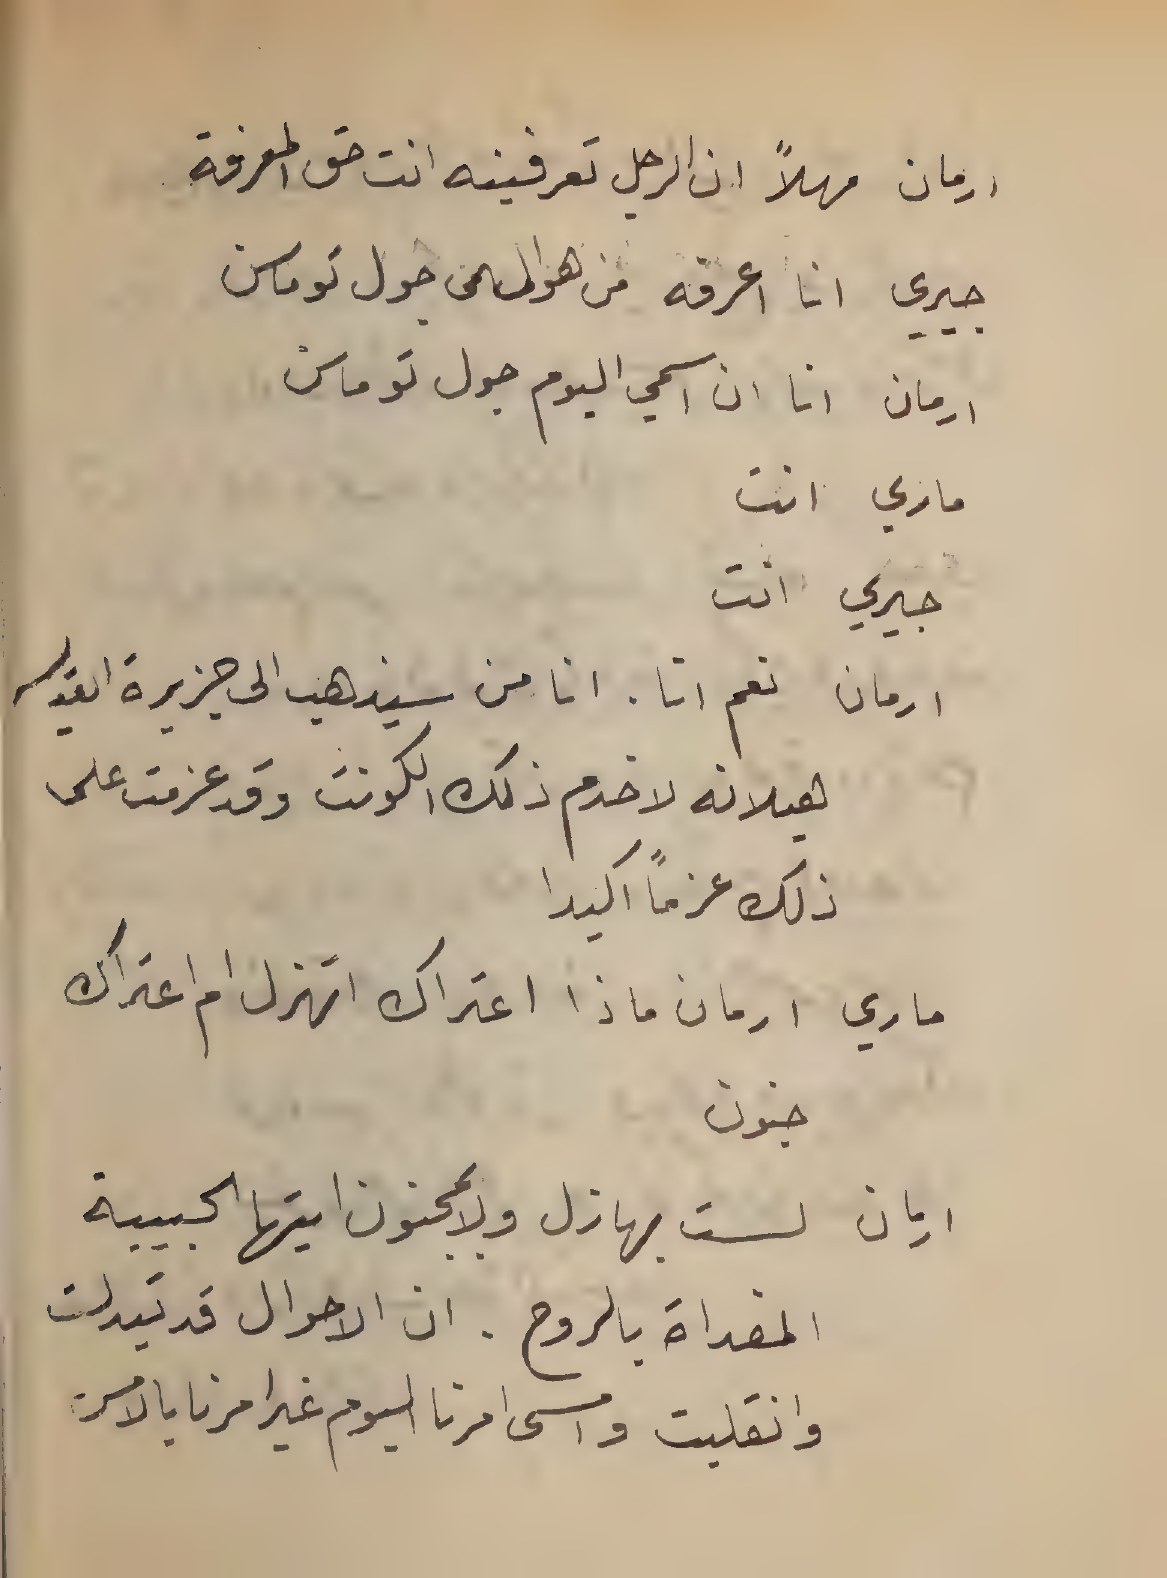 ارمان مهلاً ان الرجل تعرفينه انت حق المعرفة
جيري انا اعرفه من هو جول توماس
ارمان انا ان اسمي اليوم جول توماس
ماري انت
جيري انت
ارمان نعم انا . انا من سيذهب الى جزيرة القديسه
هيلانه لاخدم ذلك الكونت وقد عزمت على
ذلك عزماً اكيدا
ماري ارمان ماذا اعتراك اتهزل ام اعتراك
جنون
ارمان لست بهازل ولا بمجنون ايتها الحبيبة
المفداة بالروح . ان الاحوال قد تبدلت
وانقلبت وامسى امرنا اليوم غير امرنا بالامس